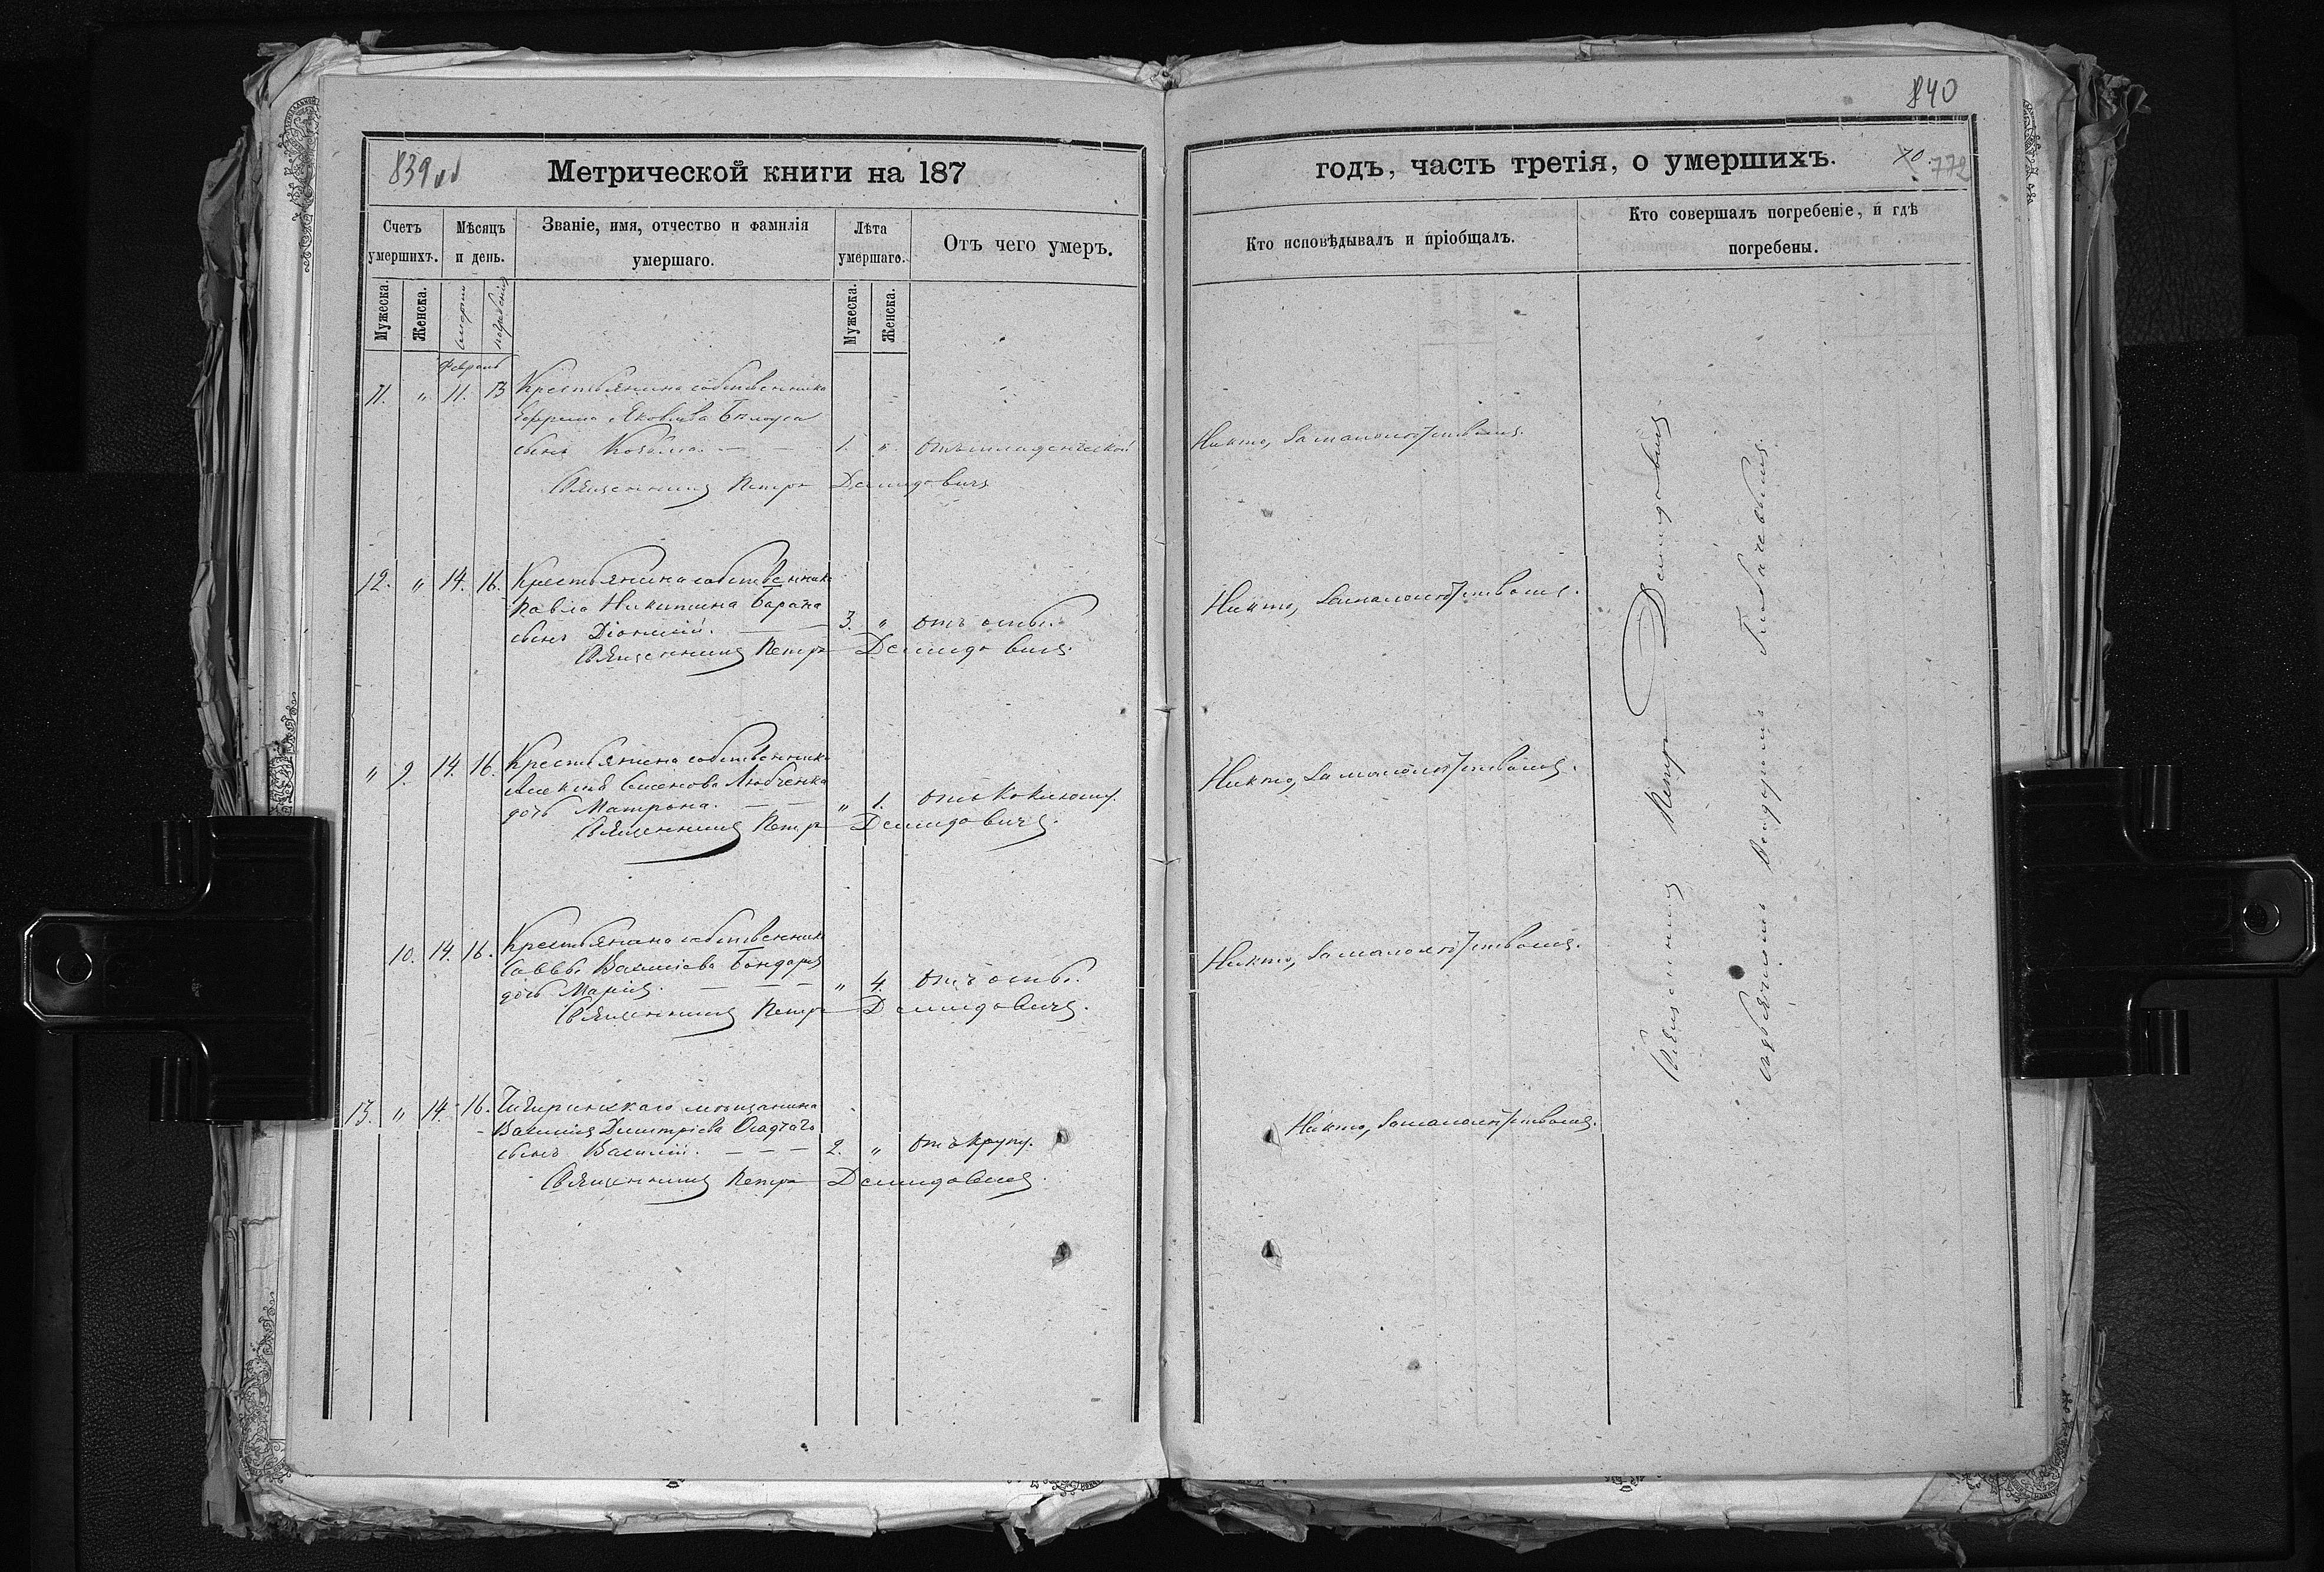 839об
Метрической книги на 187
Счетъ умершихъ.
Мѣсяцъ и день.
Званіе, имя, отчество и фамилія умершаго.
Лѣта умершаго.
Отъ чего умеръ.
Мужеска.
Женска.
смерти
погребенія
Мужеска.
Женска.
Февраль
11. " 11. 13 Крестьянина собственника
Ефрема Яковлева Бѣлоуса
сынъ Козьма. — — 1. " отъ младенческой
Священникъ Петръ Демидовичъ
12. " 14. 16. Крестьянина собственника
Павла Никитина Барана
сынъ Діонисій. — 3. " отъ оспы.
Священникъ Петръ Демидовичъ.
" 9. 14. 16. Крестьянина собственника
Алексѣя Семенова Любченка
дочь Матрона. — — " 1. отъ коклюшу.
Священникъ Петръ Демидовичъ.
10. 14. 16. Крестьянина собственника
Саввы Василіева Бондаря
дочь Марія. — — — " 4. отъ оспы.
Священникъ Петръ Демидовичъ.
13. " 14. 16. Чигиринскаго мѣщанина
Василія Димитріева Осадчаго
сынъ Василій. — — — 2. " отъ крупу.
Священникъ Петръ Демидовичъ.
840
годъ, часть третія, о умершихъ.
70.
772
Кто исповѣдывалъ и пріобщалъ.
Кто совершалъ погребеніе, и гдѣ погребены.
Никто, за малолѣтствомъ.
Никто, за малолѣтствомъ.
Никто, за малолѣтствомъ.
Никто, за малолѣтствомъ.
Никто, за малолѣтствомъ.
Священникъ Петръ Демидовичъ
съ дьячкомъ Ѳеодоромъ